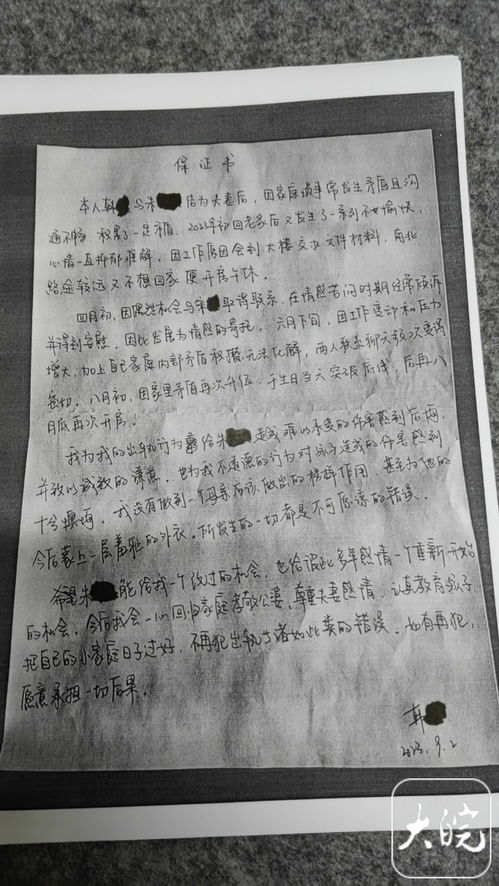 保证书
本人韩 与朱 结为夫妻后，因家庭琐事常发生矛盾且沟
通不够，积累了一定矛盾。2023年初回老家后又发生了一系列不愉快，
心情一直抑郁难解，因工作原因会到大楼交办文件材料，南北
路途较远又不想回家，便开房午休。
四月初，因偶然机会与朱 取得联系，在情感苦闷时期经常倾诉
并得到安慰，因此发展为情感的寄托。六月下旬，因工作变动和压力
增大，加上自己家庭内部矛盾积攒无法化解，两人联系聊天较次变得
密切。八月初，因家里矛盾再次升级，于生日当天突破底线，后再八
月底再次开房。
我为我的出轨行为 给朱 造成难以承受的伤害感到后悔，
并致以诚致的谦意，也为我不道德的行为对孩子造成的伤害感到
十分懊悔，我没有做到一个母亲应该做出的榜样作用，甚至为他的
今后蒙上一层羞耻的外衣。所发生的一切都是不可原谅的错误。
希望朱 能给我一个改过的机会，也给彼此多年感情一个重新开始
的机会，今后我会一心回归家庭孝敬公婆，尊重夫妻感情，认真教育孩子，
把自己的小家庭日子过好，不再犯出轨 诸如此类的错误，如有再犯，
愿意承担一切后果。
韩
2023.9.2
大皖